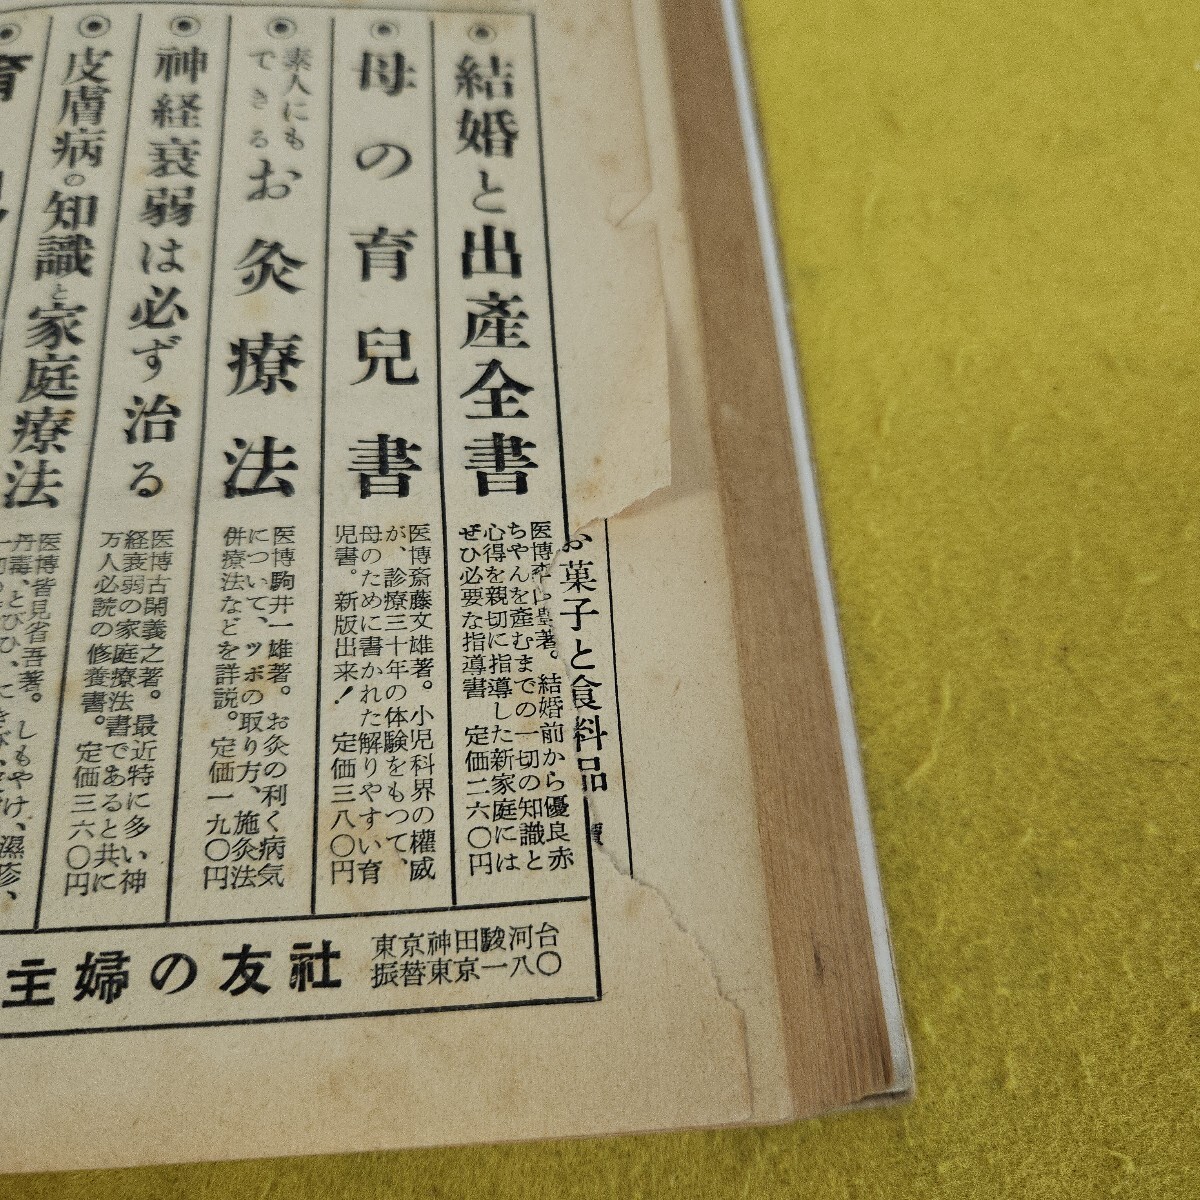 ◉ 結婚と出産全書
医博
著。結婚前から優良赤
ちゃんを産むまでの一切の知識と
心得を親切に指導した新家庭には
ぜひ必要な指導書 定価二六〇円
◉ 母の育兒書
医博斎藤文雄著。小児科界の權威
が、診療三十年の体験をもつて、
母のために書かれた解りやすい育
児書。新版出来! 定価三八〇円
◉ 素人にも
できる
お灸療法
医博駒井一雄著。お灸の利く病気
について、ツボの取り方、施灸法
併療法などを詳説。定価一九〇円
◉ 神経衰弱は必ず治る
医博古閑義之著。最近特に多い神
経衰弱の家庭療法書であると共に
万人必読の修養書。定価三六〇円
◉ 皮膚病の知識と家庭療法
医博皆見省吾著。しもやけ、濕疹、
丹毒、とびひ、にきび、
お菓子と食料品
東京神田駿河台
振替東京一八〇
主婦の友社